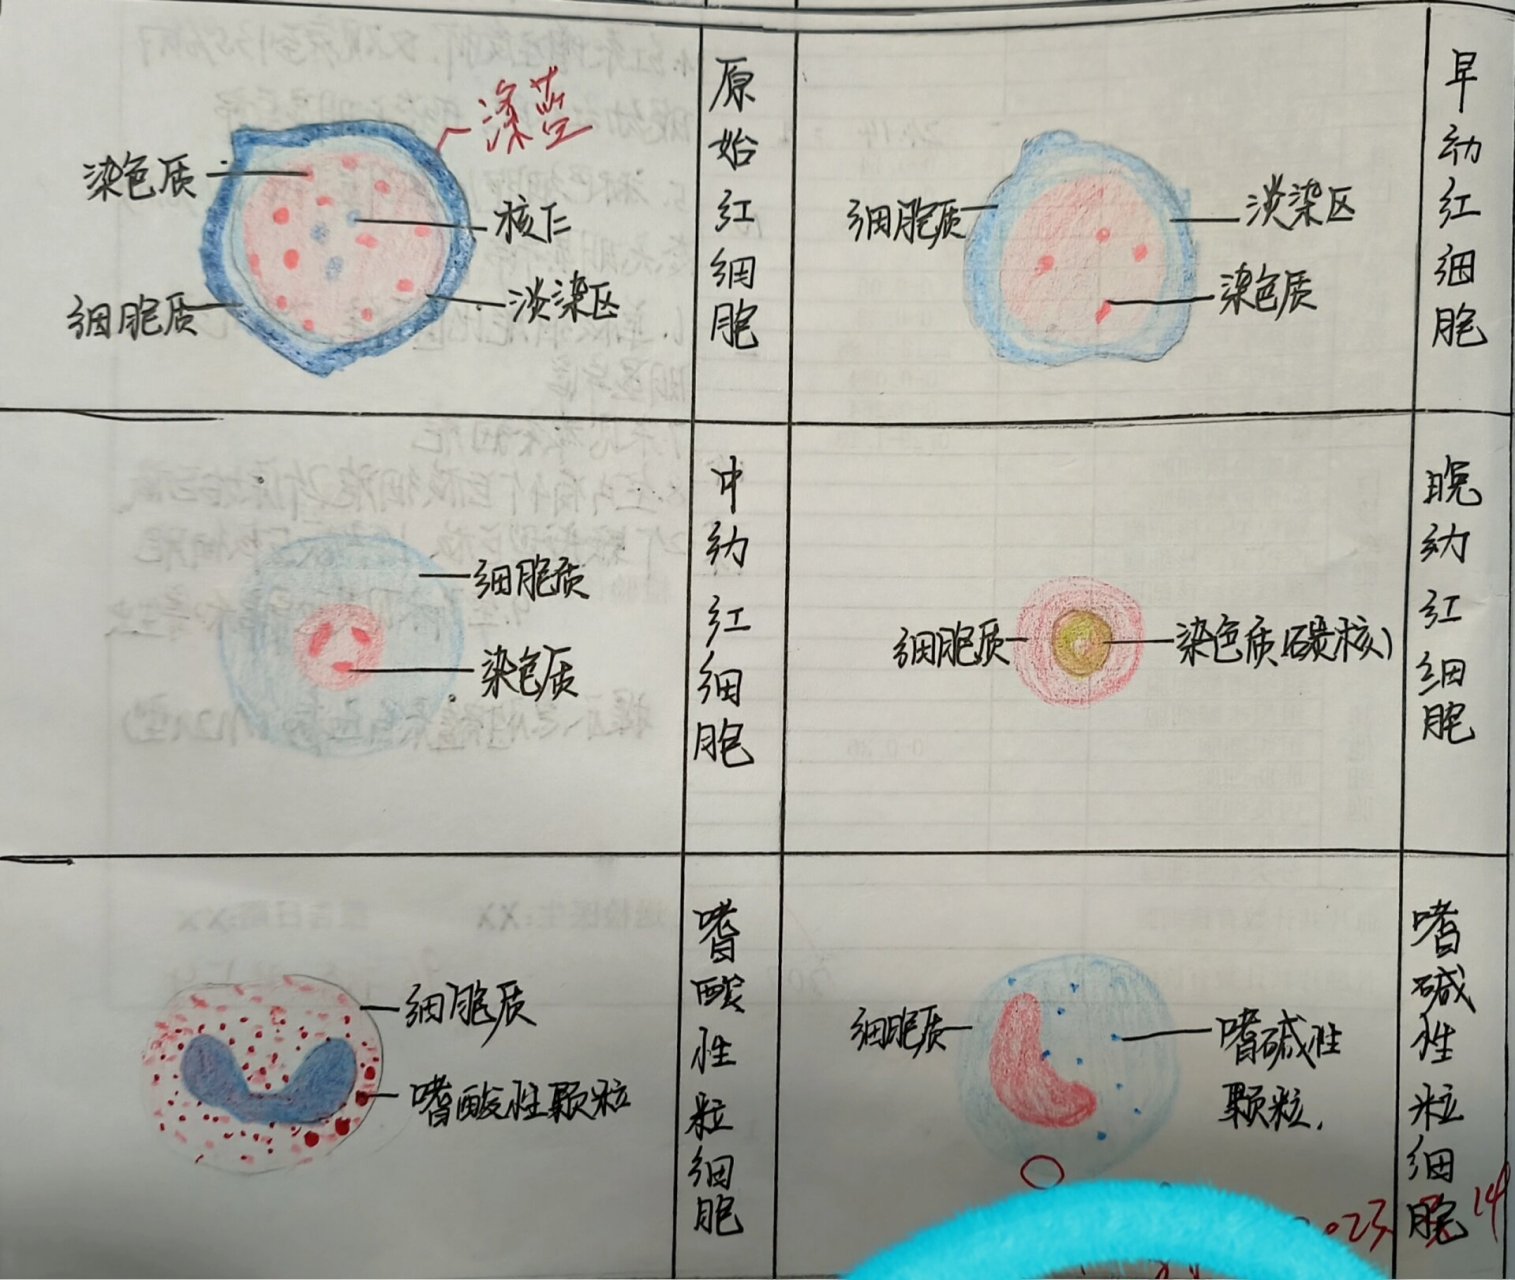 原始红细胞
染色质
深蓝
核仁
细胞质
淡染区
早幼红细胞
细胞质
淡染区
染色质
中幼红细胞
细胞质
染色质
晚幼红细胞
细胞质
染色质(碳核)
嗜酸性粒细胞
细胞质
嗜酸性颗粒
嗜碱性粒细胞
细胞质
嗜碱性
颗粒.